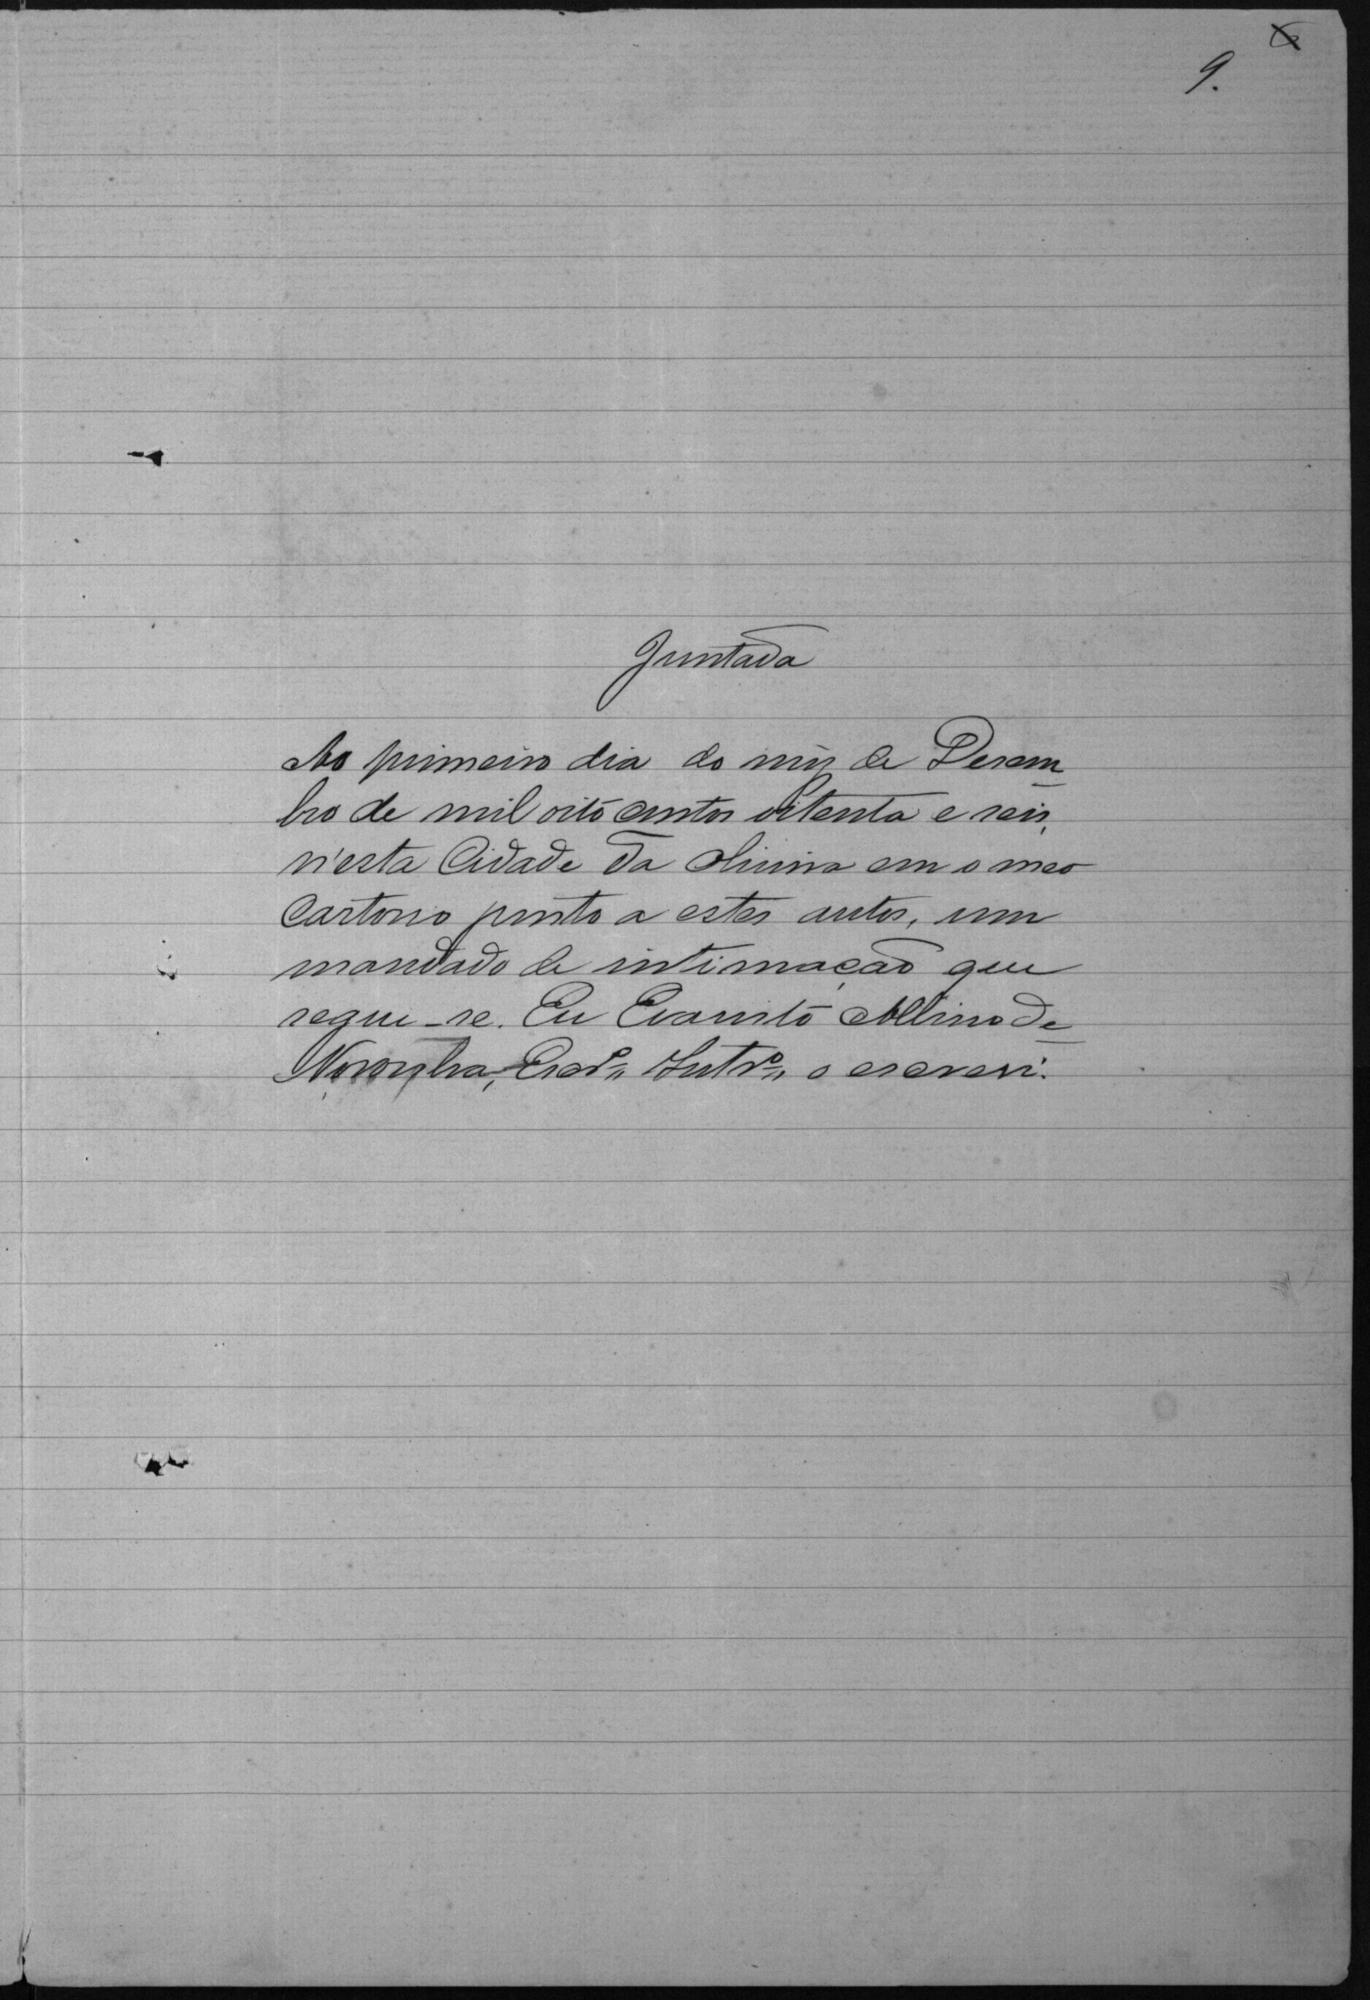 9.
Juntada
Ao primeiro dia do mez de Desem
bro de mil oito centos oitenta e seis,
n'esta Cidade da Limeira em o meo
Cartorio junto a estes autos, um
mandado de intimação que
segue-se. Eu Evaristo Albino de
Noronha, Escr.º o escrevi.